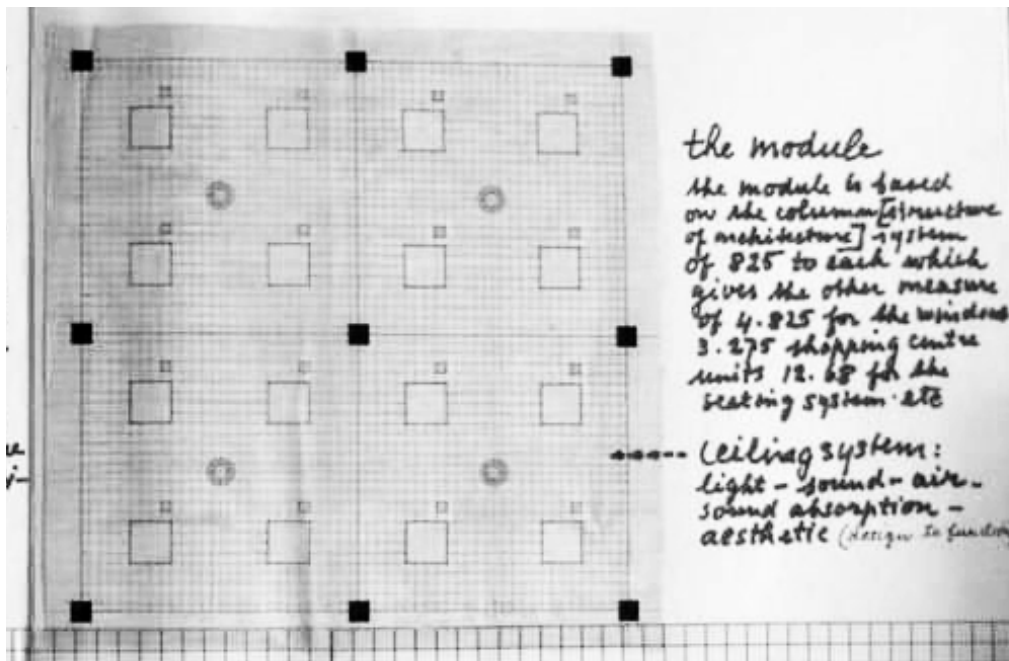 the module
the module is based
on the column [structure
of architecture] system
of 825 to each which
gives the other measure
of 4.825 for the windows
3.275 shopping centre
units 12.68 for the
seating system. etc
ceiling system:
light - sound - air -
sound absorption -
aesthetic (design to function